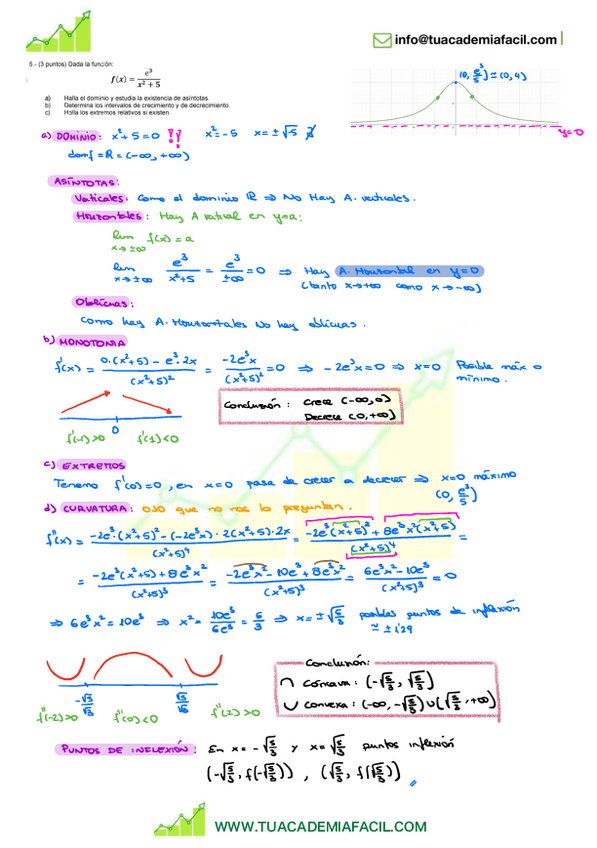 info@tuacademiafacil.com
5.- (3 puntos) Dada la función:
f(x) = e³/(x² + 5)
a) Halla el dominio y estudia la existencia de asíntotas.
b) Determina los intervalos de crecimiento y de decrecimiento.
c) Halla los extremos relativos si existen.
(0, e³/5) ≃ (0, 4)
y=0
a) DOMINIO: x²+5=0 ?? x²=-5 x=±√-5 ∄
domf = ℝ = (-∞, +∞)
ASÍNTOTAS:
Verticales: Como el dominio ℝ ⇒ No Hay A. verticales.
Horizontales: Hay A vertical en y=a:
lim f(x) = a
x→±∞
lim e³/(x²+5) = e³/±∞ = 0 ⇒ Hay A. Horizontal en y=0
x→±∞ (tanto x→+∞ como x→-∞)
Oblicuas:
Como hay A. Horizontales No hay oblicuas.
b) MONOTONIA
f'(x) = (0·(x²+5) - e³·2x)/(x²+5)² = -2e³x/(x²+5)² = 0 ⇒ -2e³x=0 ⇒ x=0 Posible máx o mínimo.
Conclusión: Crece (-∞,0)
Decrece (0,+∞)
0
f'(-1)>0 f'(1)<0
c) EXTREMOS
Tenemo f'(0)=0, en x=0 pasa de crecer a decrecer ⇒ x=0 máximo
(0, e³/5)
d) CURVATURA: OJO que no nos lo preguntan.
f''(x) = (-2e³·(x²+5)² - (-2e³x)·2(x²+5)·2x)/(x²+5)⁴ = (-2e³(x²+5)² + 8e³x²(x²+5))/(x²+5)⁴ =
= (-2e³(x²+5) + 8e³x²)/(x²+5)³ = (-2e³x² - 10e³ + 8e³x²)/(x²+5)³ = (6e³x² - 10e³)/(x²+5)³ = 0
⇒ 6e³x² = 10e³ ⇒ x² = 10e³/6e³ = 5/3 ⇒ x = ±√5/3 posibles puntos de inflexión
≃ ±1'29
Conclusión:
∩ cóncava: (-√5/3, √5/3)
∪ convexa: (-∞, -√5/3) ∪ (√5/3, +∞)
f''(-2)>0 f''(0)<0 f''(2)>0
PUNTOS DE INFLEXIÓN: En x = -√5/3 y x = √5/3 puntos inflexión
(-√5/3, f(-√5/3)) , (√5/3, f(√5/3))
WWW.TUACADEMIAFACIL.COM